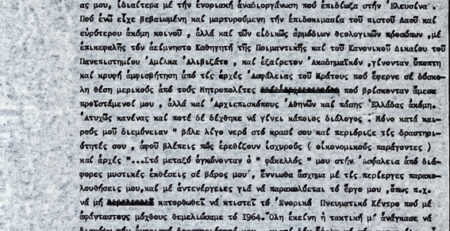 ας μου, ἰδιαίτερα μέ τήν ἐνοριακή ἀναδιοργάνωση πού ἐπιδίωξα στήν Ἐλευσίνα .
Πού ἐνῶ εἶχε βεβαιωμένη καί μαρτυρούμενη τήν ἐπιδοκιμασία τοῦ πιστοῦ Λαοῦ καί
εὐρύτερου ἀκόμη κοινοῦ , ἀλλά καί τῶν εἰδικῶς ἁρμόδιων θεολογικῶν προσώπων ,μέ
ἐπικεφαλῆς τόν ἀείμνηστο Καθηγητή τῆς Ποιμαντικῆς καί τοῦ Κανονικοῦ Δικαίου τοῦ
Πανεπιστημίου Ἀμίλκα Ἀλιβιζάτο , καί ἐξαίρετον Ἀκαδημαϊκόν ,γίνονταν ὕποπτη
καί κρυφή ἀμφισβήτηση ἀπό τίς ἀρχές Ἀσφάλειας τοῦ Κράτους πού ἔφερνε σέ δύσκο-
λη θέση μερικούς ἀπό τούς Μητροπολῖτες πού βρίσκονταν ἄμεσα
προϊστάμενοί μου , ἀλλά καί Ἀρχιεπισκόπους Ἀθηνῶν καί πάσης Ἑλλάδας ἀκόμη.
Ἀτυχῶς κανένας καί ποτέ δέ δέχθηκε νά γίνει κάποιος διάλογος . Μόνο κατά και-
ρούς μοῦ διεμήνυαν " βάλε λίγο νερό στό κρασί σου καί περιόριζε τίς δραστηρι-
ότητές σου , ἀφοῦ βλέπεις πώς ἐρεθίζουν ἰσχυρούς ( οἰκονομικούς παράγοντες )
καί ἀρχές "...Στό μεταξύ ὀγκώνονταν ὁ " φάκελλός " μου στήν Ἀσφάλεια ἀπό διά-
φορες μυστικές ἐκθέσεις σέ βάρος μου , ἔννιωθα ἄσχημα μέ τίς περίεργες παρακο-
λουθήσεις μου,καί μέ ἀντενέργειες γιά νά παρακωλύεται τό ἔργο μου ,ὅπως π.χ.
νά μή κατορθωθεῖ νά κτιστεῖ τό Ἐνοριακό Πνευματικό Κέντρο πού μέ
ἀφάνταστους μόχθους θεμελιώσαμε τό 1964. Ὅλη ἐκείνη ἡ τακτική μ' ἀνάγκασε νά